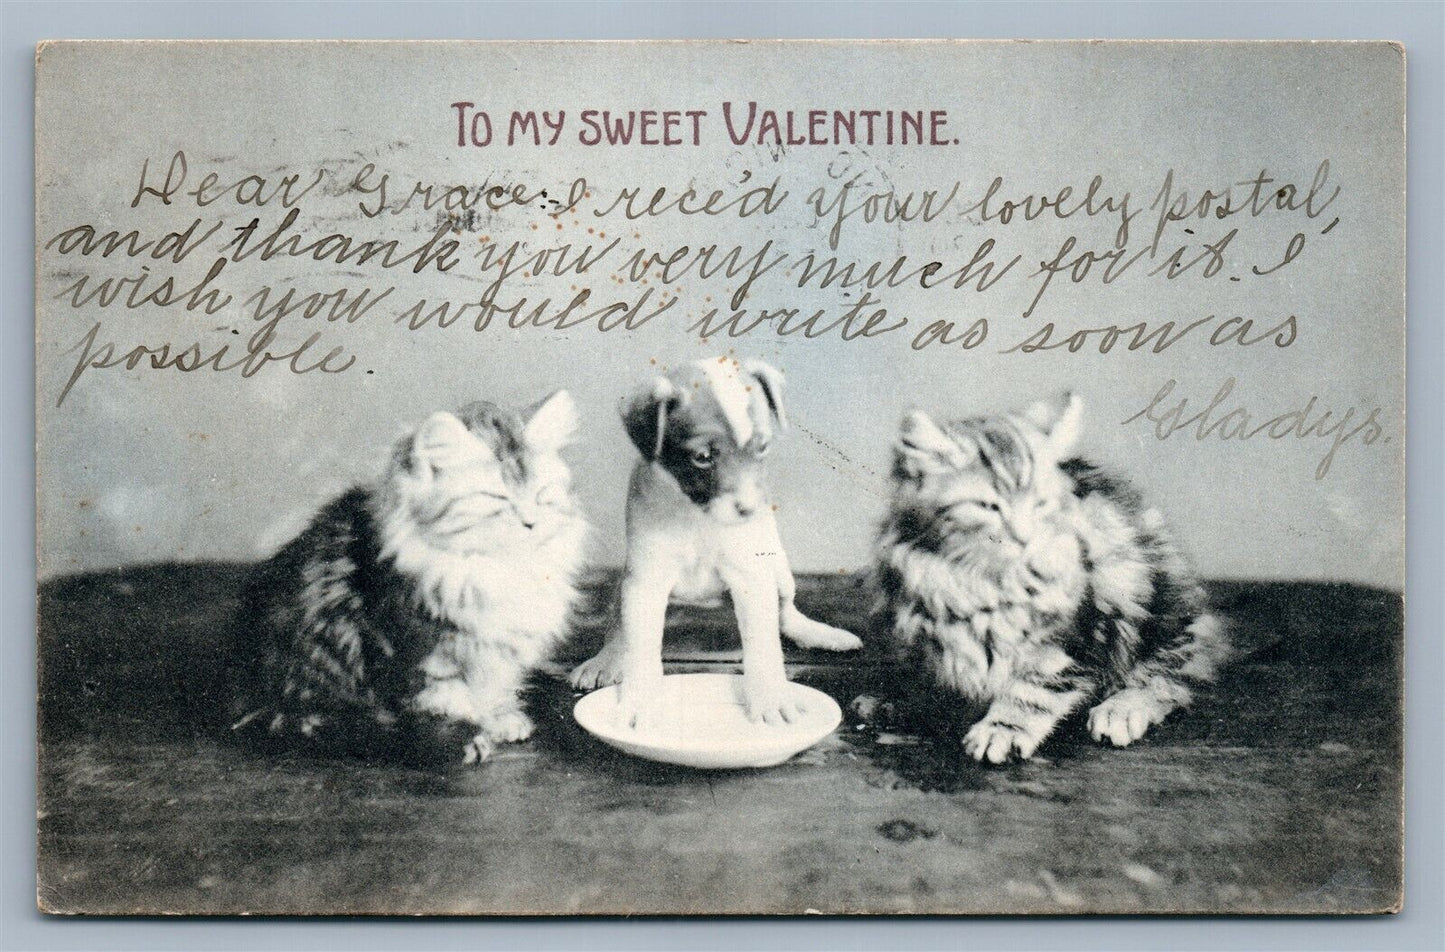 TO MY SWEET VALENTINE.
Dear Grace:- I rece'd your lovely postal,
and thank you very much for it. I
wish you would write as soon as
possible.
Gladys.